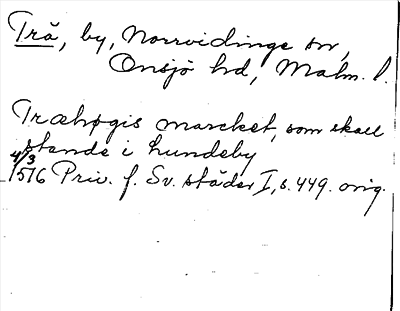 Trå, by, Norrvidinge sn,
Onsjö hd, Malm. l.
Træhøgis marcket, som skall
stande i hundeby
4/3
1516 Priv. f. Sv. städer I, s. 449. orig.